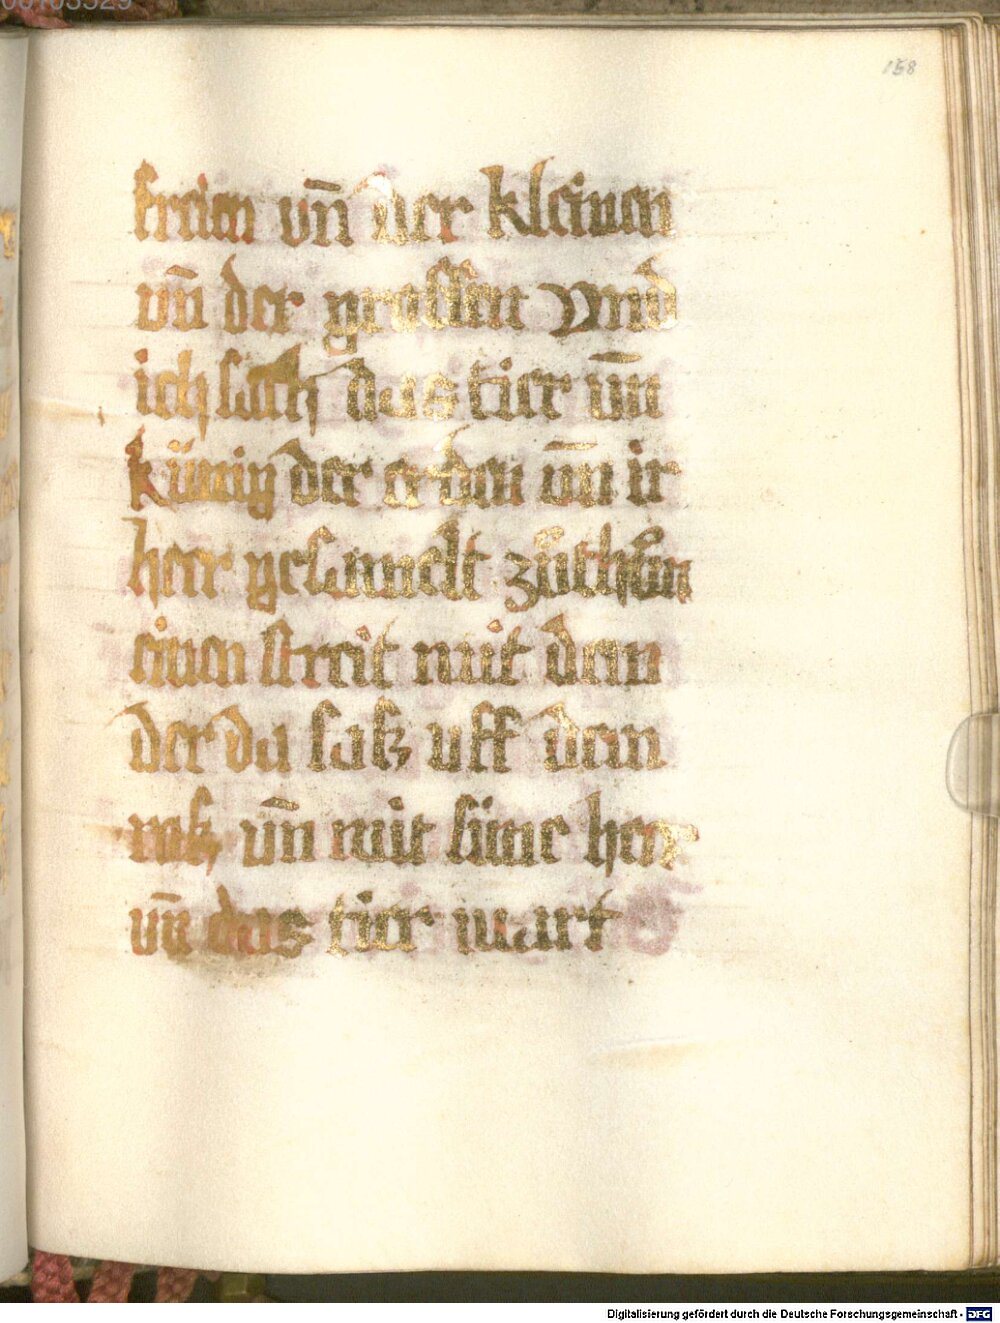 00103529
158
freien vn̄ der kleinen
vn̄ der grossen Vnd
ich sach das tier vn̄
künig der erden vn̄ ir
heer gesamelt zůthůn
einen streit mit dem
der da saß uff dem
roß vn̄ mit sime her
vn̄ das tier wart
Digitalisierung gefördert durch die Deutsche Forschungsgemeinschaft - DFG